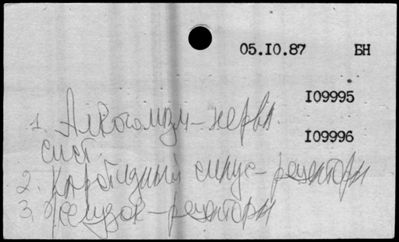 05.I0.87 БН
I09995
I09996
1. Алкоголизм - нервн.
сист.
2. Каротидный синус - рецепторы
3. Желудок - рецепторы